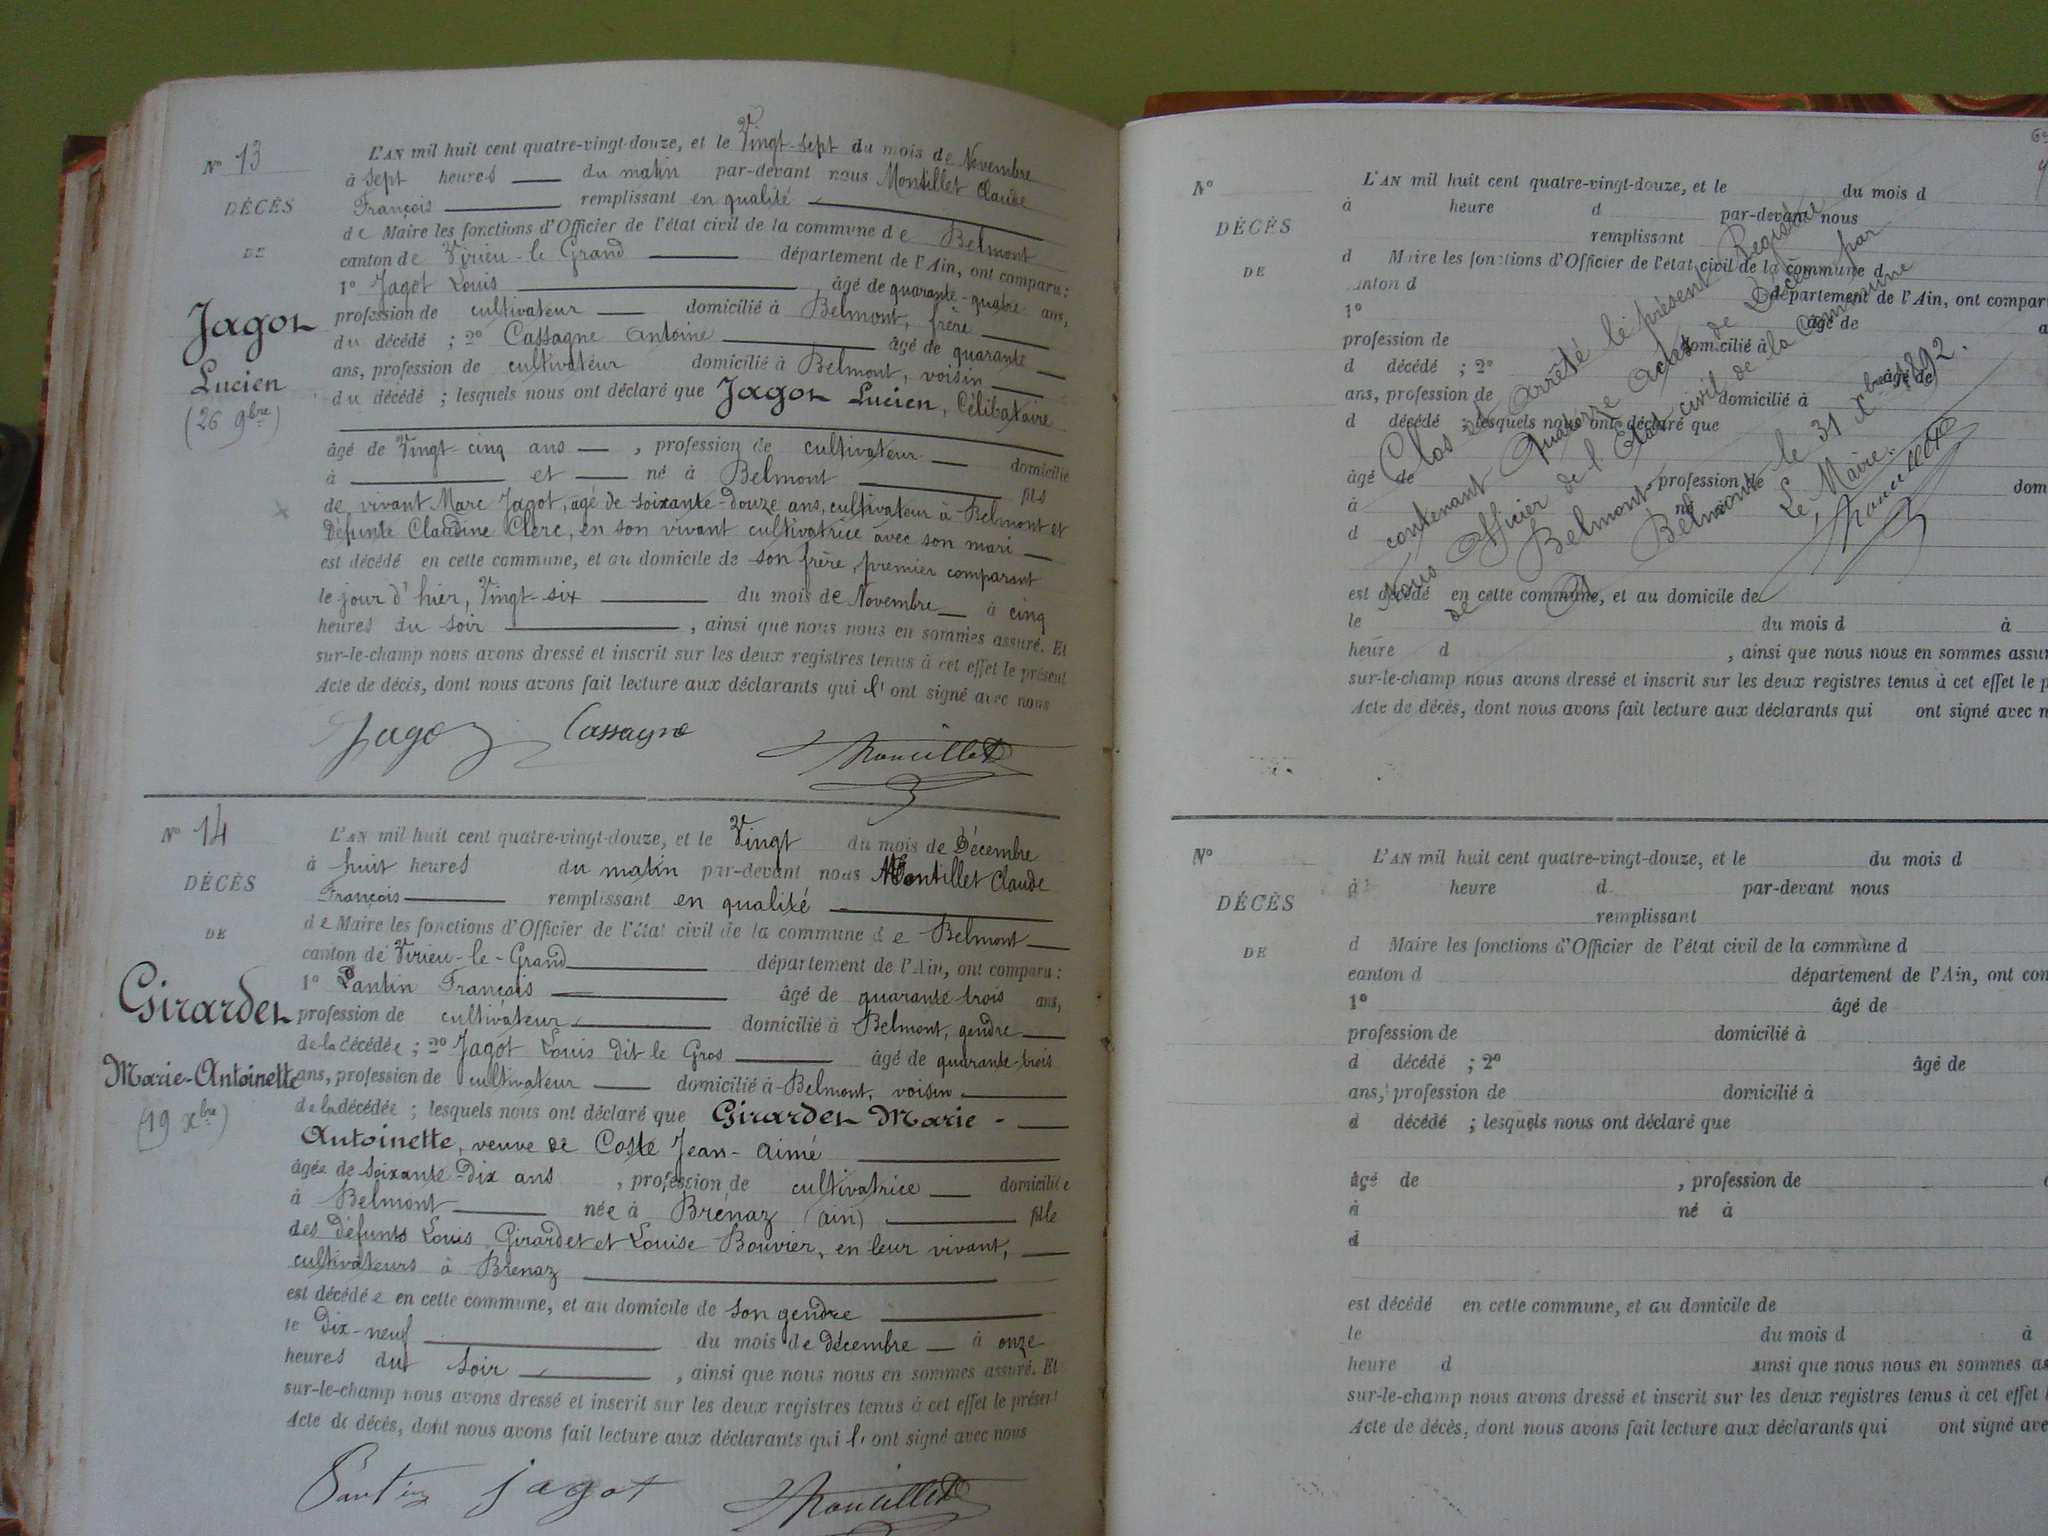 N° 13
DÉCÈS
DE
Jagot
Lucien
(26 9bre)
L'AN mil huit cent quatre-vingt-douze, et le Vingt-sept du mois de Novembre
à sept heures du matin par-devant nous Montillet Claude
François remplissant en qualité
de Maire les fonctions d'Officier de l'état civil de la commune de Belmont
canton de Virieu-le Grand département de l'Ain, ont comparu :
1° Jagot Louis, âgé de quarante-quatre ans,
profession de cultivateur domicilié à Belmont, frère
du décédé ; 2° Cassagne Antoine âgé de quarante
ans, profession de cultivateur domicilié à Belmont, voisin
du décédé ; lesquels nous ont déclaré que Jagot Lucien, Célibataire
âgé de Vingt-cinq ans, profession de cultivateur domicilié
à et né à Belmont fils
de vivant Marc Jagot, âgé de soixante-douze ans, cultivateur à Belmont et
défunte Claudine Clerc, en son vivant cultivatrice avec son mari
est décédé en cette commune, et au domicile de son frère, premier comparant
le jour d'hier, Vingt-six du mois de Novembre à cinq
heures du soir, ainsi que nous nous en sommes assuré. Et
sur-le-champ nous avons dressé et inscrit sur les deux registres tenus à cet effet le présent
Acte de décès, dont nous avons fait lecture aux déclarants qui l'ont signé avec nous
Jagot Cassagne Montillet
N° 14
DÉCÈS
DE
Girardet
Marie-Antoinette
(19 Xbre)
L'AN mil huit cent quatre-vingt-douze, et le Vingt du mois de Décembre
à huit heures du matin par-devant nous Montillet Claude
François remplissant en qualité
de Maire les fonctions d'Officier de l'état civil de la commune de Belmont
canton de Virieu-le-Grand département de l'Ain, ont comparu :
1° Pantin François âgé de quarante-trois ans,
profession de cultivateur domicilié à Belmont, gendre
de la décédée ; 2° Jagot Louis dit le Gros âgé de quarante-trois
ans, profession de cultivateur domicilié à Belmont, voisin
de la décédée ; lesquels nous ont déclaré que Girardet Marie-
Antoinette, veuve de Coste Jean-Aimé
âgée de soixante-dix ans, profession de cultivatrice domiciliée
à Belmont née à Brénaz (ain) fille
des défunts Louis Girardet et Louise Bouvier, en leur vivant,
cultivateurs à Brenaz
est décédée en cette commune, et au domicile de son gendre
le dix-neuf du mois de décembre à onze
heures du soir, ainsi que nous nous en sommes assuré. Et
sur-le-champ nous avons dressé et inscrit sur les deux registres tenus à cet effet le présent
Acte de décès, dont nous avons fait lecture aux déclarants qui l'ont signé avec nous
Pantin jagot Montillet
N°
DÉCÈS
DE
L'AN mil huit cent quatre-vingt-douze, et le du mois d
à heure d par-devant nous
remplissant
d Maire les fonctions d'Officier de l'état civil de la commune d
canton d département de l'Ain, ont compar
1° âgé de a
profession de domicilié à
d décédé ; 2° âgé de
ans, profession de domicilié à
d décédé ; lesquels nous ont déclaré que
âgé de profession de dom
à né à
d
est décédé en cette commune, et au domicile de
le du mois d à
heure d, ainsi que nous nous en sommes assur
sur-le-champ nous avons dressé et inscrit sur les deux registres tenus à cet effet le p
Acte de décès, dont nous avons fait lecture aux déclarants qui ont signé avec n
Clos et Arrêté le présent Registre
contenant Quatorze Actes de Décès par
Nous Officier de l'Etat civil de la Commune
de Belmont
à Belmont le 31 Xbre 1892.
Le Maire.
Montillet
N°
DÉCÈS
DE
L'AN mil huit cent quatre-vingt-douze, et le du mois d
à heure d par-devant nous
remplissant
d Maire les fonctions d'Officier de l'état civil de la commune d
canton d département de l'Ain, ont com
1° âgé de
profession de domicilié à
d décédé ; 2° âgé de
ans, profession de domicilié à
d décédé ; lesquels nous ont déclaré que
âgé de, profession de
à né à
d
est décédé en cette commune, et au domicile de
le du mois d à
heure d ainsi que nous nous en sommes as
sur-le-champ nous avons dressé et inscrit sur les deux registres tenus à cet effet l
Acte de décès, dont nous avons fait lecture aux déclarants qui ont signé ave